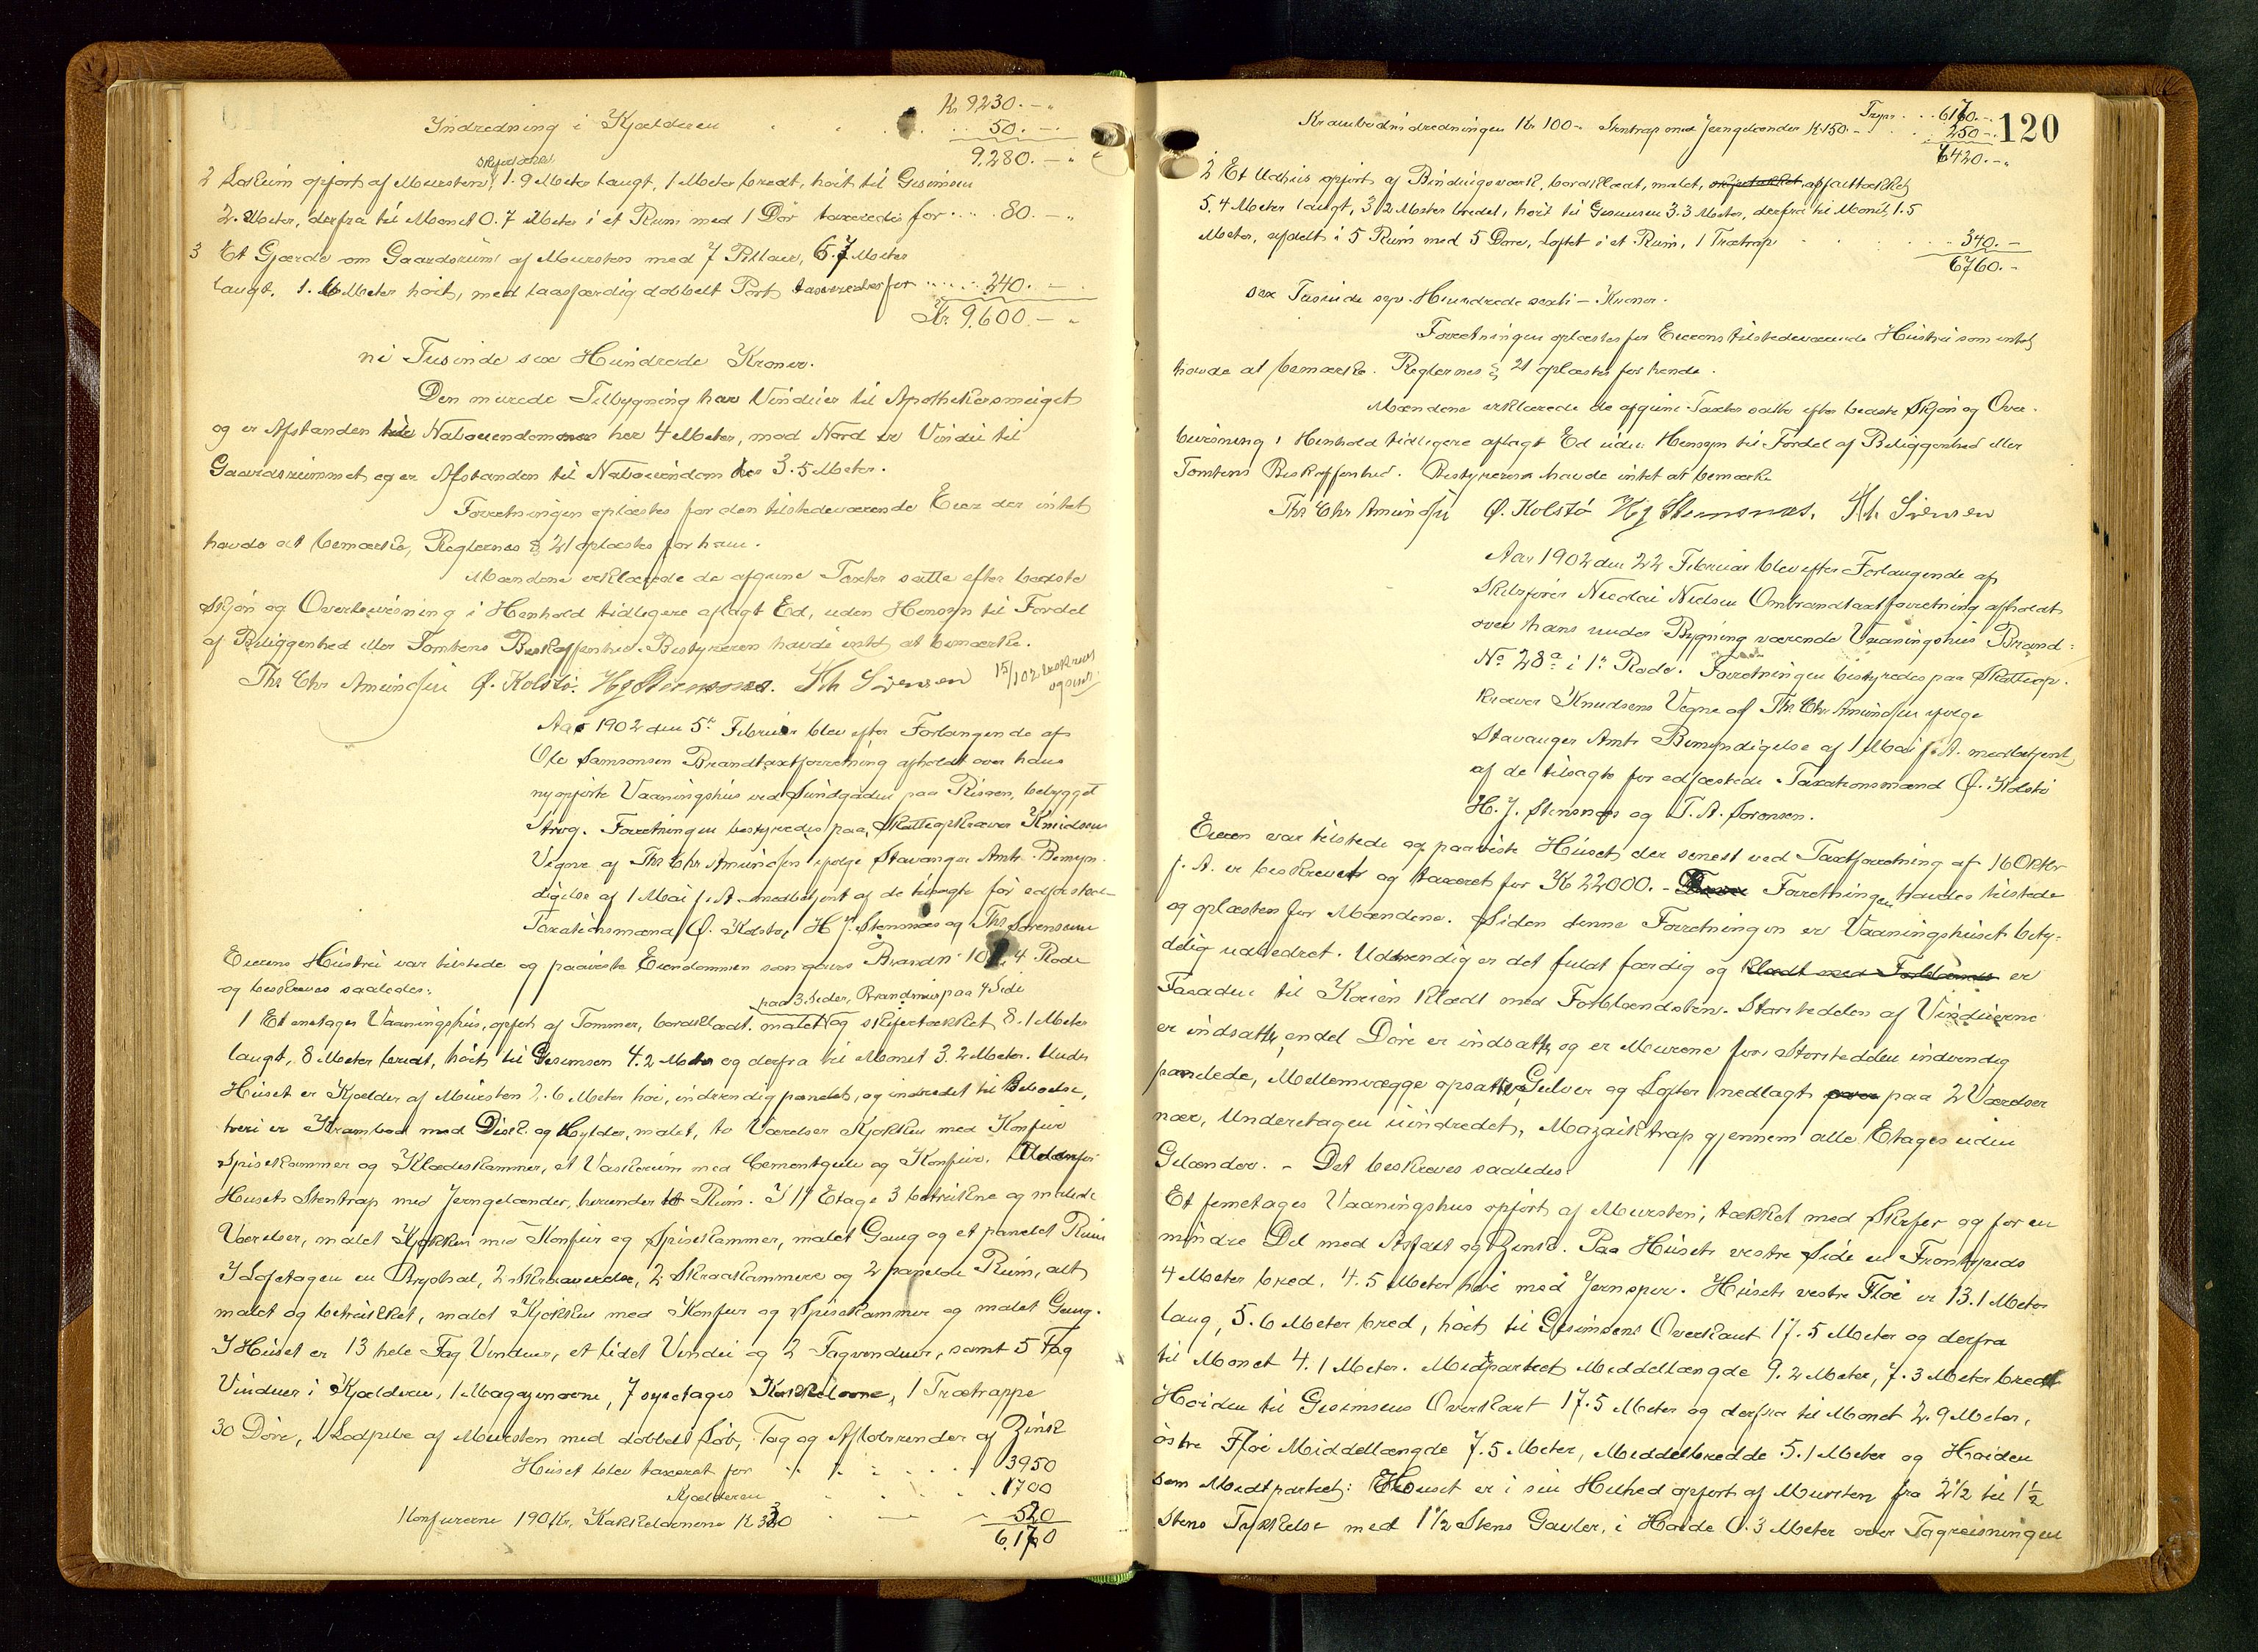 Kr 9230.-"
Indredning i Kjælderen . . . 50.-
9,280.-"
2 Lokum opført af Mursten, skifertækket, 1.9 Meter langt, 1 Meter bredt, høit til Gesimsen
2. Meter, derfra til Mønet 0.7 Meter i et Rum med 1 Dør taxeredes for .... 80.-"
3 Et Gjærde om Gaardsrum af Mursten med 7 Pillarer, 6.7 Meter
langt. 1.6 Meter høit, med laasfærdig dobbelt Port taxeredes for ..... 240.-
Kr. 9,600.-"
ni Tusinde sex Hundrede Kroner.
Den murede Tilbygning har Vinduer til Apothekersmuget
og er Afstanden til Naboeiendommen her 4 Meter, mod Nord er Vindu til
Gaardsrummet og er Afstanden til Naboeiendom her 3.5 Meter.
Forretningen oplæstes for den tilstedeværende Eier der intet
havde at bemærke, Reglernes § 21 oplæstes for ham.
Mændene erklærede de afgivne Taxter satte efter bedste
Skjøn og Overbevisning i Henhold tidligere aflagt Ed, uden Hensyn til Fordel
af Beliggenhed eller Tomtens Beskaffenhed. Bestyreren havde intet at bemærke.
Ths Chr Amundsen Ø. Kolstø. H J Stensnes. Th Sørensen 15/1 02
Aar 1902 den 5te Februar blev efter Forlangende af
Ole Samsonsen Brandtaxtforretning afholdt over hans
nyopførte Vaaningshus ved Sundgaden paa Risøen, bebygget
Strøg. Forretningen bestyredes paa Skatteopkræver Knudsens
Vegne af Ths Chr Amundsen ifølge Stavanger Amts Bemyn-
digelse af 1 Mai f. A. medbetjent af de tilsagte før edfæstede
Taxationsmænd Ø. Kolstø, H J. Stensnæs og Ths Sørensen
Eierens Hustru var tilstede og paaviste Eiendommen som gaves Brandn 10 4 Rode
og beskreves saaledes:
paa 3 Sider, Brandmur paa 4 Side
1 Et enetages Vaaningshus, opført af Tømmer, bordklædt. malet og skifertækket 8.1 Meter
langt, 8 Meter bredt, høit til Gesimsen 4.2 Meter og derfra til Mønet 3.2 Meter. Under
Huset er Kjælder af Mursten 2.6 Meter høi, indvendig panelet, og indredet til Beboelse,
hvori er Krambod med Disk og Hylder, malet, to Værelser Kjøkken med Komfur
Spisekammer og Klædeskammer, et Vaskerum med Cementgulv og Komfur. Udenfor
Huset Stentrap med Jerngelænder, herunder to Rum. I 1ste Etage 3 betrukne og malede
Værelser, malet Kjøkken med Komfur og Spisekammer, malet Gang og et panelet Rum
I Loftetagen en Arkhal, 2 Skraaværelse, 2 Skraakammere og 2 panelede Rum, alt
malet og betrukket, malet Kjøkken med Komfur og Spisekammer og malet Gang.
I Huset er 13 hele Fag Vinduer, et lidet Vindu og 2 Tagvinduer, samt 5 Fag
Vinduer i Kjælderen, 1 Magazinovne, 7 syvetages Kakkelovne, 1 Trætrappe
30 Døre, 1 Lodpibe af Mursten med dobbelt Løb, Tag og Afløbsrender af Zink
Huset blev taxeret for . . . . . 3950
Kjælderen . . . . 1700
Komfurerne 190 Kr, Kakkelovnene Kr 330 . 520
6,170
Trpr . . . 6170.-
Krambodindredningen Kr 100.- Stentrap med Jerngelænder Kr 150.- . . 250.-
120
6420.-"
2 Et Udhus opført af Bindingsværk, bordklædt, malet, skifertækket asfalttækket
5.4 Meter langt, 3.2 Meter bredt, høit til Gesimsen 3.3 Meter, derfra til Mønet 1.5
Meter, afdelt i 5 Rum med 5 Døre, Loftet i et Rum, 1 Trætrap . . . . 340.-
6760.-
sex Tusinde syv Hundrede sexti - Kroner.
Forretningen oplæstes for Eierens tilstedeværende Hustru som intet
havde at bemærke. Reglernes § 21 oplæstes for hende.
Mændene erklærede de afgivne Taxter satte efter bedste Skjøn og Over-
bevisning i Henhold tidligere aflagt Ed uden Hensyn til Fordel af Beliggenhed eller
Tomtens Beskaffenhed. Bestyreren havde intet at bemærke
Ths Chr Amundsen Ø. Kolstø H J Stensnæs. Th Sørensen
Aar 1902 den 22 Februar blev efter Forlangende af
Skibsfører Nicolai Nielsen Ombrandtaxtforretning afholdt
over hans under Bygning værende Vaaningshus Brand-
No 28a i 1ste Rode. Forretningen bestyredes paa Skatteop-
kræver Knudsens Vegne af Ths Chr Amundsen ifølge
Stavanger Amts Bemyndigelse af 1 Mai f. A. medbetjent
af de tilsagte før edfæstede Taxationsmænd Ø. Kolstø
H. J. Stensnæs og T. A. Sørensen.
Eieren var tilstede og paaviste Huset der senest ved Taxtforretning af 16 Oktbr
f. A. er beskrevet og taxeret for Kr 22000.- Forretningen havdes tilstede
og oplæstes for Mændene. Siden denne Forretningen er Vaaningshuset bety-
delig udbedret. Udvendig er det fuldt færdig og klædt med Forblænds er
Facaden til Kaien klædt med Forblændsten. Størstedelen af Vinduerne
er indsatte, endel Døre er indsatte og er Murene for Størstedelen indvendig
panelede, Mellemvægge opsatte, Gulver og Lofter nedlagt over paa 2 Værelser
nær, Underetagen uindredet, Mazaiktrap gjennem alle Etager uden
Gelænder. - Det beskreves saaledes:
Et femetages Vaaningshus opført af Mursten, tækket med Skifer og for en
mindre Del med Asfalt og Zink. Paa Husets vestre Side en Frontspids
4 Meter bred, 4.5 Meter høi med Jernspir. Husets vestre Fløi er 13.1 Meter
lang, 5.6 Meter bred, høit til Gesimsens Overkant 17.5 Meter og derfra
til Mønet 4.1 Meter. Midtpartiet Middellængde 9.2 Meter, 7.3 Meter bredt
Høiden til Gesimsens Overkant 17.5 Meter og derfra til Mønet 2.9 Meter,
østre Fløi Middellængde 7.5 Meter, Middelbredde 5.1 Meter og Høiden
som Midtpartiet: Huset er i sin Helhed opført af Mursten fra 2 1/2 til 1 1/2
Stens Tykkelse med 1 1/2 Stens Gavler, i Høide 0.3 Meter over Tagreisningen